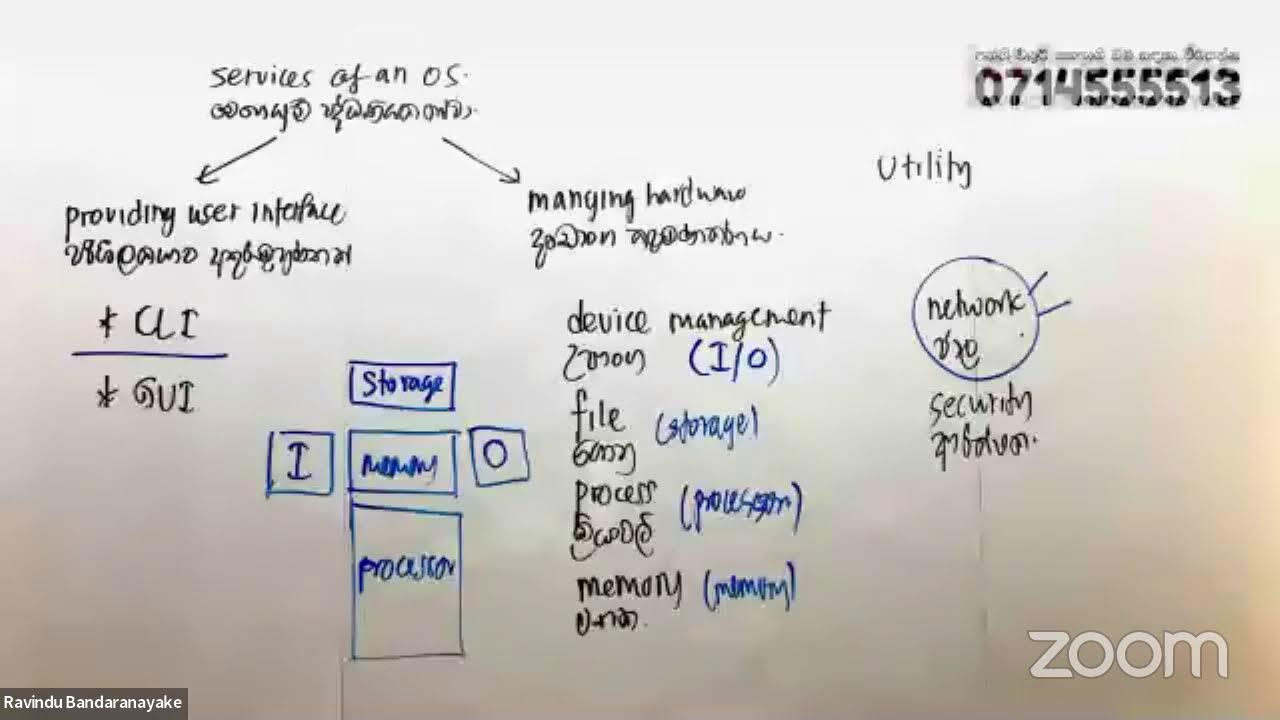 services of an OS.
මෙහෙයුම් පද්ධතියක සේවා.
0714555513
Utility
providing user interface
පරිශීලකයාට අතුරුමුහුණත
manging hardware
දෘඩාංග කළමනාකරණය.
* CLI
* GUI
Storage
I
memory
O
processor
device management
උපාංග (I/O)
file (storage)
ගොනු
process (processor)
ක්‍රියාවලි
memory (memory)
මතක.
network
ජාල
security
ආරක්ෂාව.
zoom
Ravindu Bandaranayake